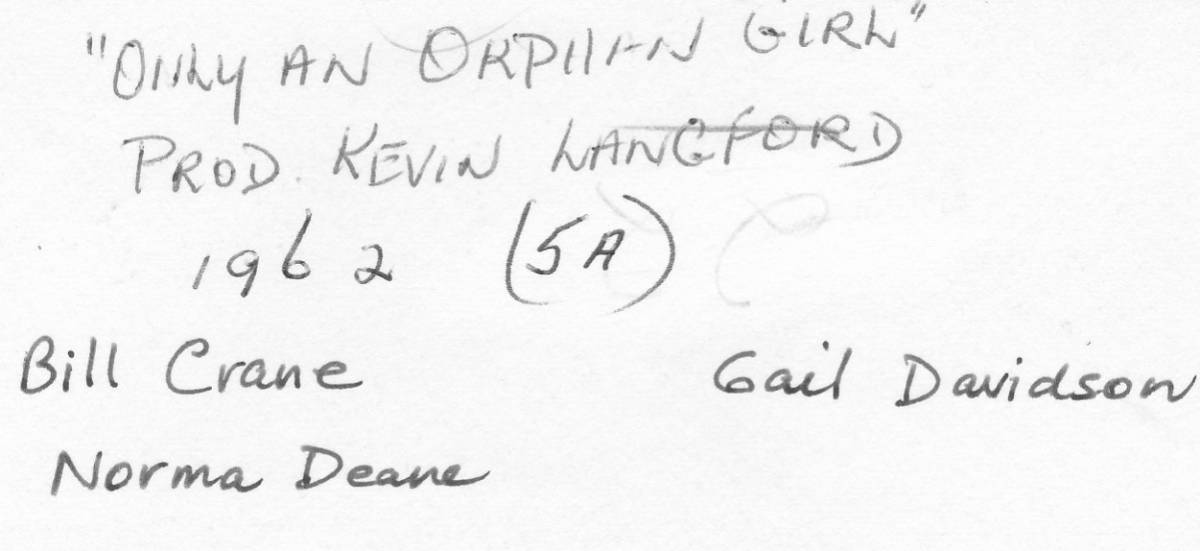 "ONLY AN ORPHAN GIRL"
PROD. KEVIN LANGFORD
1962 (5A)
Bill Crane Gail Davidson
Norma Deane